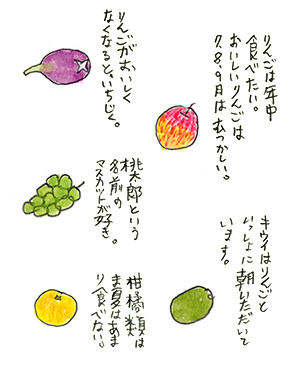 りんごは年中
食べたい。
おいしいりんごは
7.8.9月はむつかしい。
りんごがおいしく
なくなると、いちじく。
桃太郎という
名前の
マスカットが好き。
キウイはりんごと
いっしょに朝いただいて
います。
柑橘類は
ま夏はあま
り食べない。